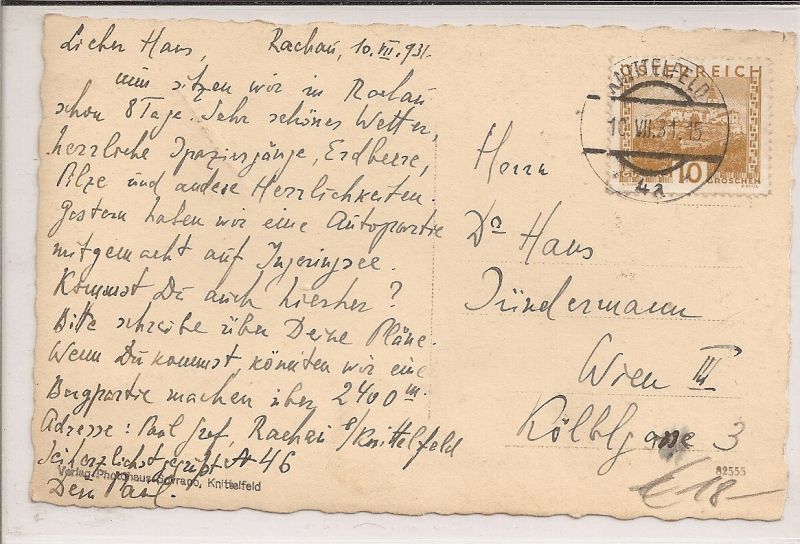 Lieber Hans, Rachau, 10.VII.931.
nun sitzen wir in Rachau
schon 8 Tage. Sehr schönes Wetter,
herrliche Spaziergänge, Erdbeere,
Pilze und andere Herrlichkeiten.
Gestern haben wir eine Autopartie
mitgemacht auf Ingeringsee.
Kommst Du auch hierher?
Bitte schreibe über Deine Pläne.
Wenn Du kommst, könnten wir eine
Bergpartie machen über 2400 m.
Adresse: Paul Graf, Rachau b/Knittelfeld
Sei herzlichst gegrüßt № 46
Dein Paul.
Verlag Photohaus Sovrano, Knittelfeld
ÖSTERREICH
10 GROSCHEN
KNITTELFELD
10.VII.31 15
4a
Herrn
Dr Hans
Jündermann
Wien III
Kölblgasse 3
82555
18-